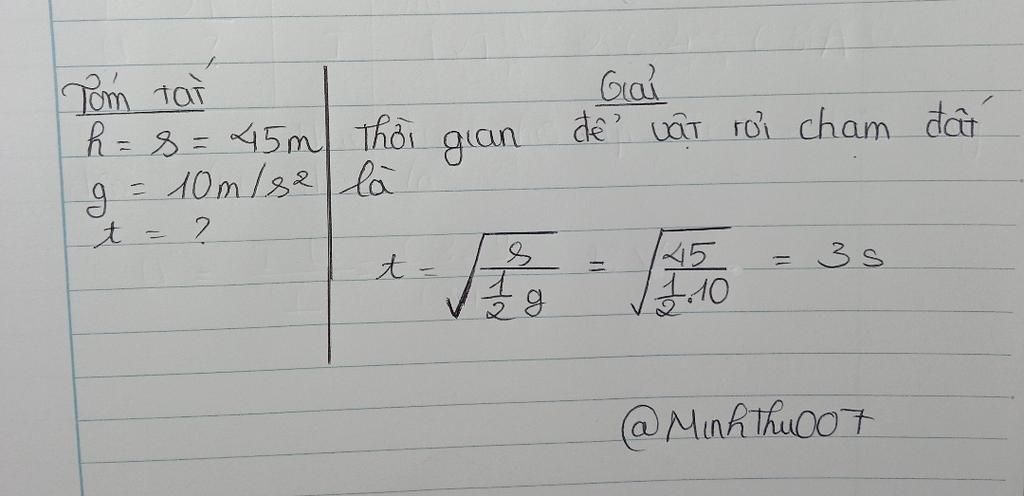 Tóm tắt
h = s = 45m
g = 10m/s²
t = ?
Giải
Thời gian để vật rơi chạm đất
là
t = √(s / (1/2 g)) = √(45 / (1/2 . 10)) = 3s
@MinhThu007